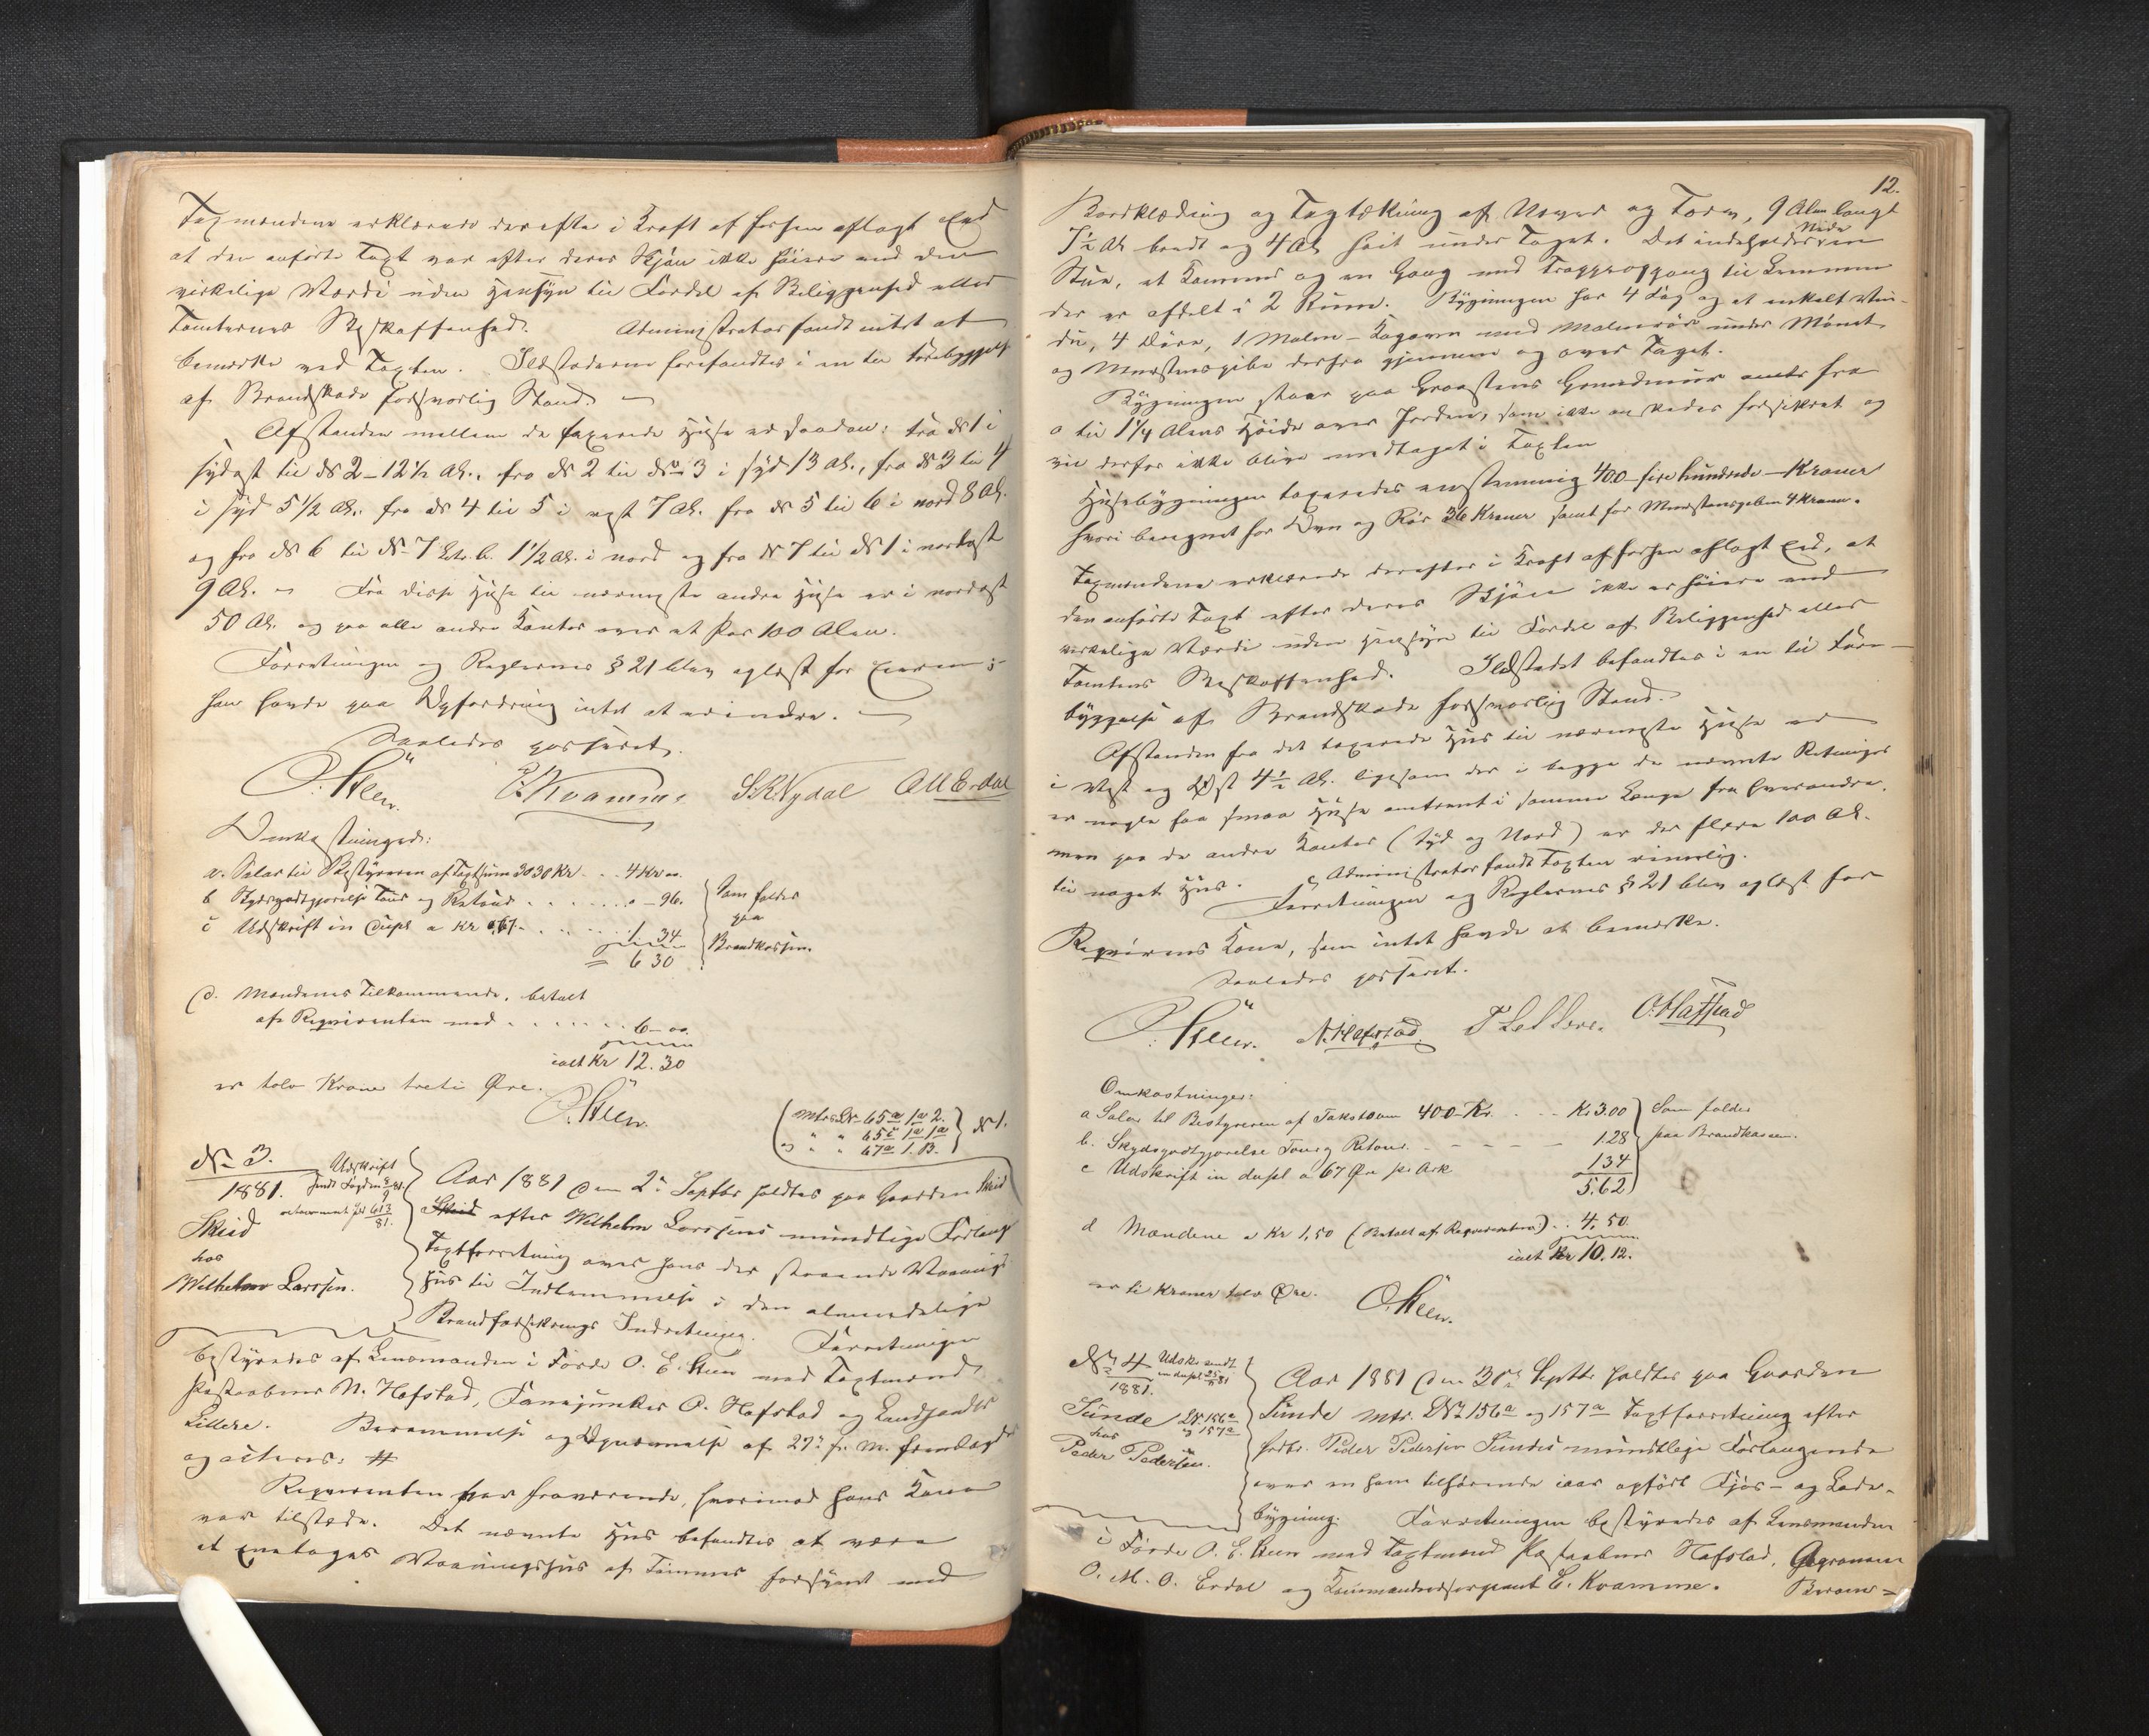 Taxmændene erklærede derefter i Kraft af forhen aflagt Eed
at den anførte Taxt var efter deres Skjøn ikke høiere end den
virkelige Værdi uden Hensyn til Fordel af Beliggenhed eller
Tomternes Beskaffenhed. Administrator fandt intet at
bemærke ved Taxten. Ildstederne forefandtes i en til Forebyggelse
af Brandskade forsvarlig Stand. —
Afstanden mellem de taxerede Huse er saadan: fra No 1 i
sydøst til No 2 – 12½ Al., fra No 2 til No 3 i syd 13 Al., fra No 3 til 4
i syd 5½ Al. fra No 4 til 5 i vest 7 Al. fra No 5 til 6 i nord 8 Al.
og fra No 6 til No 7 Litr. b. 1½ Al. i nord og fra No 7 til No 1 i nordost
9 Al. — Fra disse Huse til nærmeste andre Huse er i nordost
50 Al. og paa alle andre Kanter over et Par 100 Alen.
Forretningen og Reglernes § 21 blev oplæst for Eieren;
han havde paa Opfordring intet at erindre. —
Saaledes passeret.
O. Steen. E. Kvamme S. R. Nydal O M Erdal
Omkostninger:
a. Salær til Bestyreren af Taxtsum 3030 Kr . . 4 Kr 00.
b Skydsgodtgjørelse Tour og Retour . . . . . . 0 – 96.
c Udskrift in dupl a Kr 0,67 . . . . . 1. 34
= 6 30
Som falder
paa
Brandkassen.
d. Mændenes Tilkommende, betalt
af Reqvirenten med . . . . . . 6 – 00.
ialt Kr 12. 30
er tolv Kroner treti Øre.
O. Steen.
Mtr. Lr 65a 1a 2.
" " 65c 1a 1a
og " " 67a 1. B.
No 1.
No 3.
1881.
Udskrift
Skeid
hos
Wilhelm Larssen.
Aar 1881 den 2. Septbr holdtes paa Gaarden Skeid
Skeid efter Wilhelm Larssens mundtlige Forlang
Taxtforretning over hans der staaende Vaanings
Hus til Indlemmelse i den almindelige
Brandforsikrings Indretning. Forretningen
bestyredes af Lensmanden i Førde O. E. Steen med Taxtmænd
Postaabner N. Hafstad, Fanejunker O. Hafstad og Landhandler
Lillere. Berammelse og Opnævnelse af 27. f. M. fremlagdes
og acteres: #
Reqvirenten var fraværende, hvorimod hans Kone
var tilstede. Det nævnte Hus befandtes at være
et enetages Vaaningshus af Tømmer forsynt med
12.
Bordklædning og Tagtækning af Næver og Torv, 9 Alen langt
7½ Al. bredt og 4 Al. høit under Taget. Det indeholder nede en
Stue, et Kammer og en Gang med Trappeopgang til Lemmen
der er afdelt i 2 Rum. Bygningen har 4 Fag og et enkelt Vin-
due, 4 Døre, 1 Malm-Kogeovn med Malmrør under Mønet
og Murstenspibe derfra gjennem og over Taget.
Bygningen staar paa Graastens Grundmur antr. fra
0 til 1¼ Alens Høide over Jorden, som ikke ønskedes forsikret og
vil derfor ikke blive medtaget i Taxten
Husebygningen taxeredes enstemmig 400 – fire hundrede – Kroner
hvori beregnet for Ovn og Rør 36 Kroner samt for Murstenspiben 4 Kroner.
Taxmændene erklærede derefter i Kraft af forhen aflagt Eed, at
den anførte Taxt efter deres Skjøn ikke er høiere end
virkelige Værdi uden Hensyn til Fordel af Beliggenhed eller
Tomtens Beskaffenhed. Ildstedet befandtes i en til Fore-
byggelse af Brandskade forsvarlig Stand.
Afstanden fra det taxerede Hus til nærmeste Huse er
i Vest og Øst 4½ Al. ligesom der i begge de nævnte Retninger
er nogle faa smaa Huse omtrent i samme Længe fra hverandre,
men paa de andre Kanter (Syd og Nord) er der flere 100 Al.
til noget Hus. Administrator fandt Taxten rimelig.
Forretningen og Reglernes § 21 blev oplæst for
Reqvirens Kone, som intet havde at bemærke.
Saaledes passeret.
O. Steen. N. Hafstad. O. Hafstad
Omkostninger:
a Salær til Bestyreren af Takstsum 400 Kr. . . Kr 3.00
b. Skydsgodtgjørelse Tour og Retour. – – – – 1.28
c Udskrift in dupl a 67 Øre pr Ark 1 34
5.62
Som falder
paa Brandkassen.
d Mændene a Kr 1,50 (Betalt af Reqvirenten) . . 4. 50
ialt Kr 10. 12.
er ti Kroner tolv Øre. O. Steen.
No 4
1881.
Udskr. sendt
Sunde Lr. 156a
hos og 157a
Peder Pedersen.
Aar 1881 den 30. Septbr. holdtes paa Gaarden
Sunde Mtr. Lr 156a og 157a Taxtforretning efter
Peder Pedersen Sundes mundtlige Forlangende
over en ham tilhørende iaar opført Fjøs- og Lade-
bygning. Forretningen bestyredes af Lensmanden
i Førde O. E. Steen med Taxtmænd Postaabner Hafstad,
O. M. O. Erdal og Kommandersergeant E. Kvamme. Beram-